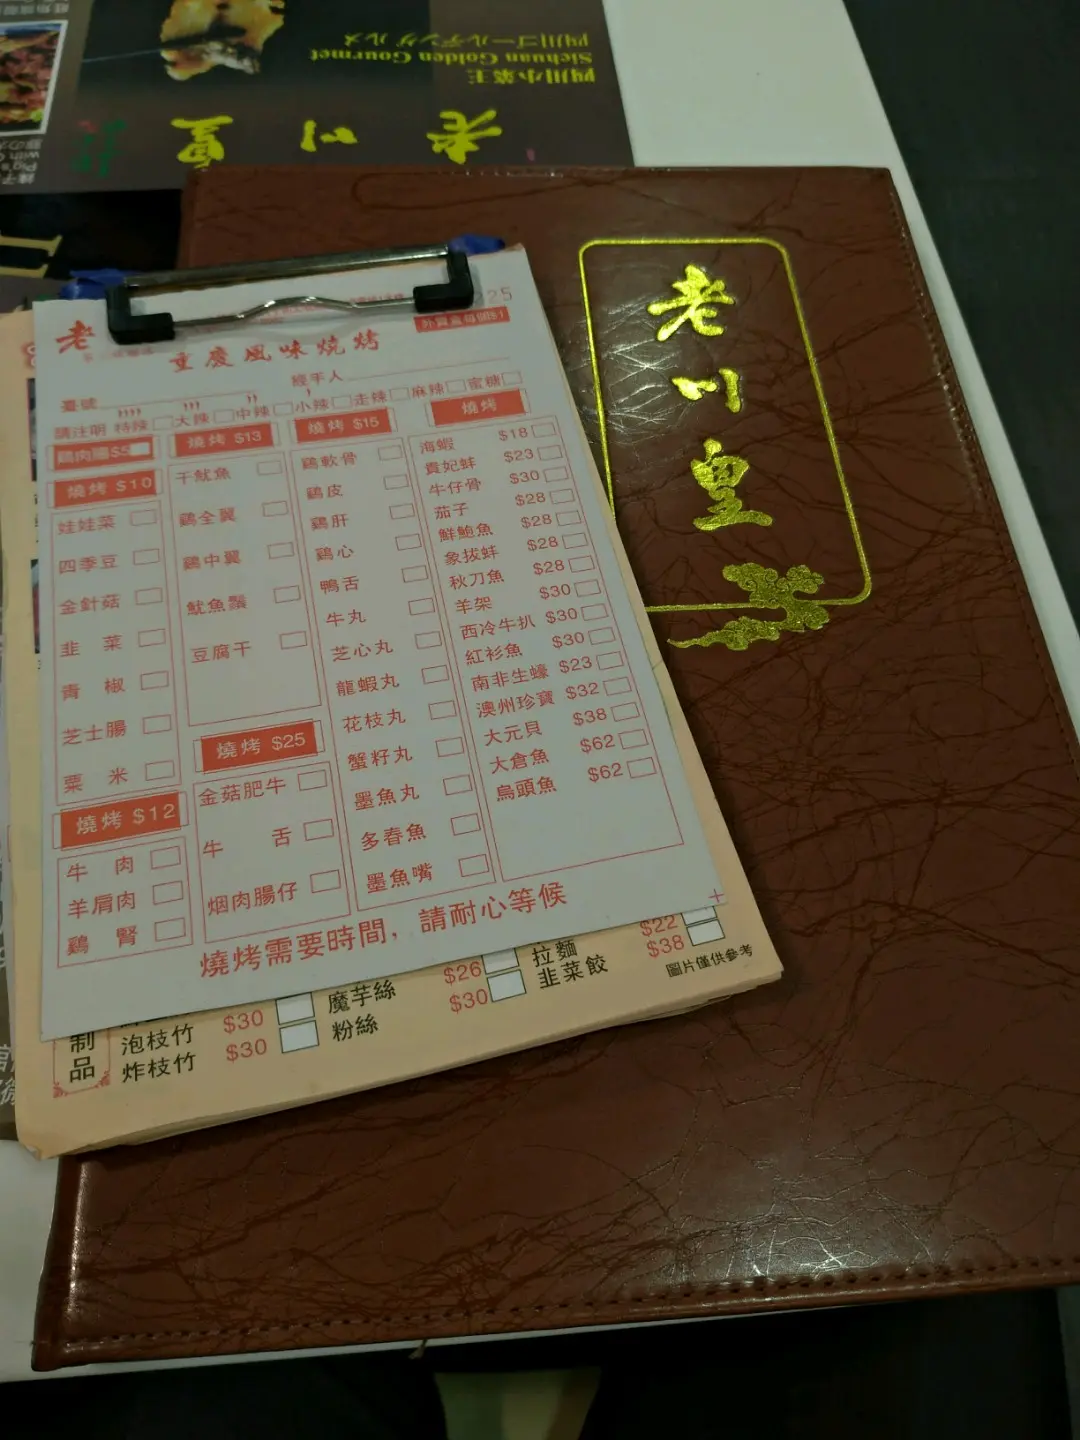 四川ゴールデンゲルメ
Sichuan Golden Gourmet
四川小菜王
老川皇
老川皇
老
重慶風味燒烤
外賣盒每個$1
25
經手人
臺號
請注明 特辣 大辣 中辣 小辣 走辣 麻辣 蜜糖
鷄肉腸$5
燒烤 $10
娃娃菜
四季豆
金針菇
韭菜
青椒
芝士腸
粟米
燒烤 $12
牛肉
羊肩肉
鷄腎
燒烤 $13
干魷魚
鷄全翼
鷄中翼
魷魚鬚
豆腐干
燒烤 $25
金菇肥牛
牛舌
烟肉腸仔
燒烤 $15
鷄軟骨
鷄皮
鷄肝
鷄心
鴨舌
牛丸
芝心丸
龍蝦丸
花枝丸
蟹籽丸
墨魚丸
多春魚
墨魚嘴
燒烤
海蝦 $18
貴妃蚌 $23
牛仔骨 $30
茄子 $28
鮮鮑魚 $28
象拔蚌 $28
秋刀魚 $28
羊架 $30
西冷牛扒 $30
紅衫魚 $30
南非生蠔 $23
澳州珍寶 $32
大元貝 $38
大倉魚 $62
烏頭魚 $62
燒烤需要時間，請耐心等候
制品
泡枝竹 $30
炸枝竹 $30
魔芋絲 $26
粉絲 $30
拉麵 $22
韭菜餃 $38
圖片僅供參考